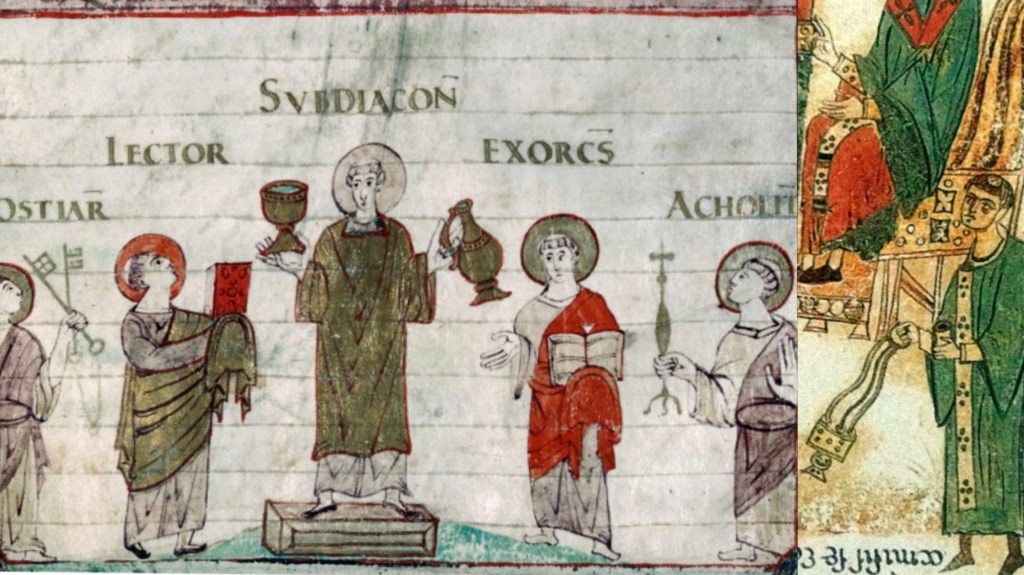 SVBDIACOÑ
LECTOR
EXORCS̄
OSTIAR̄
ACHOLIT̄